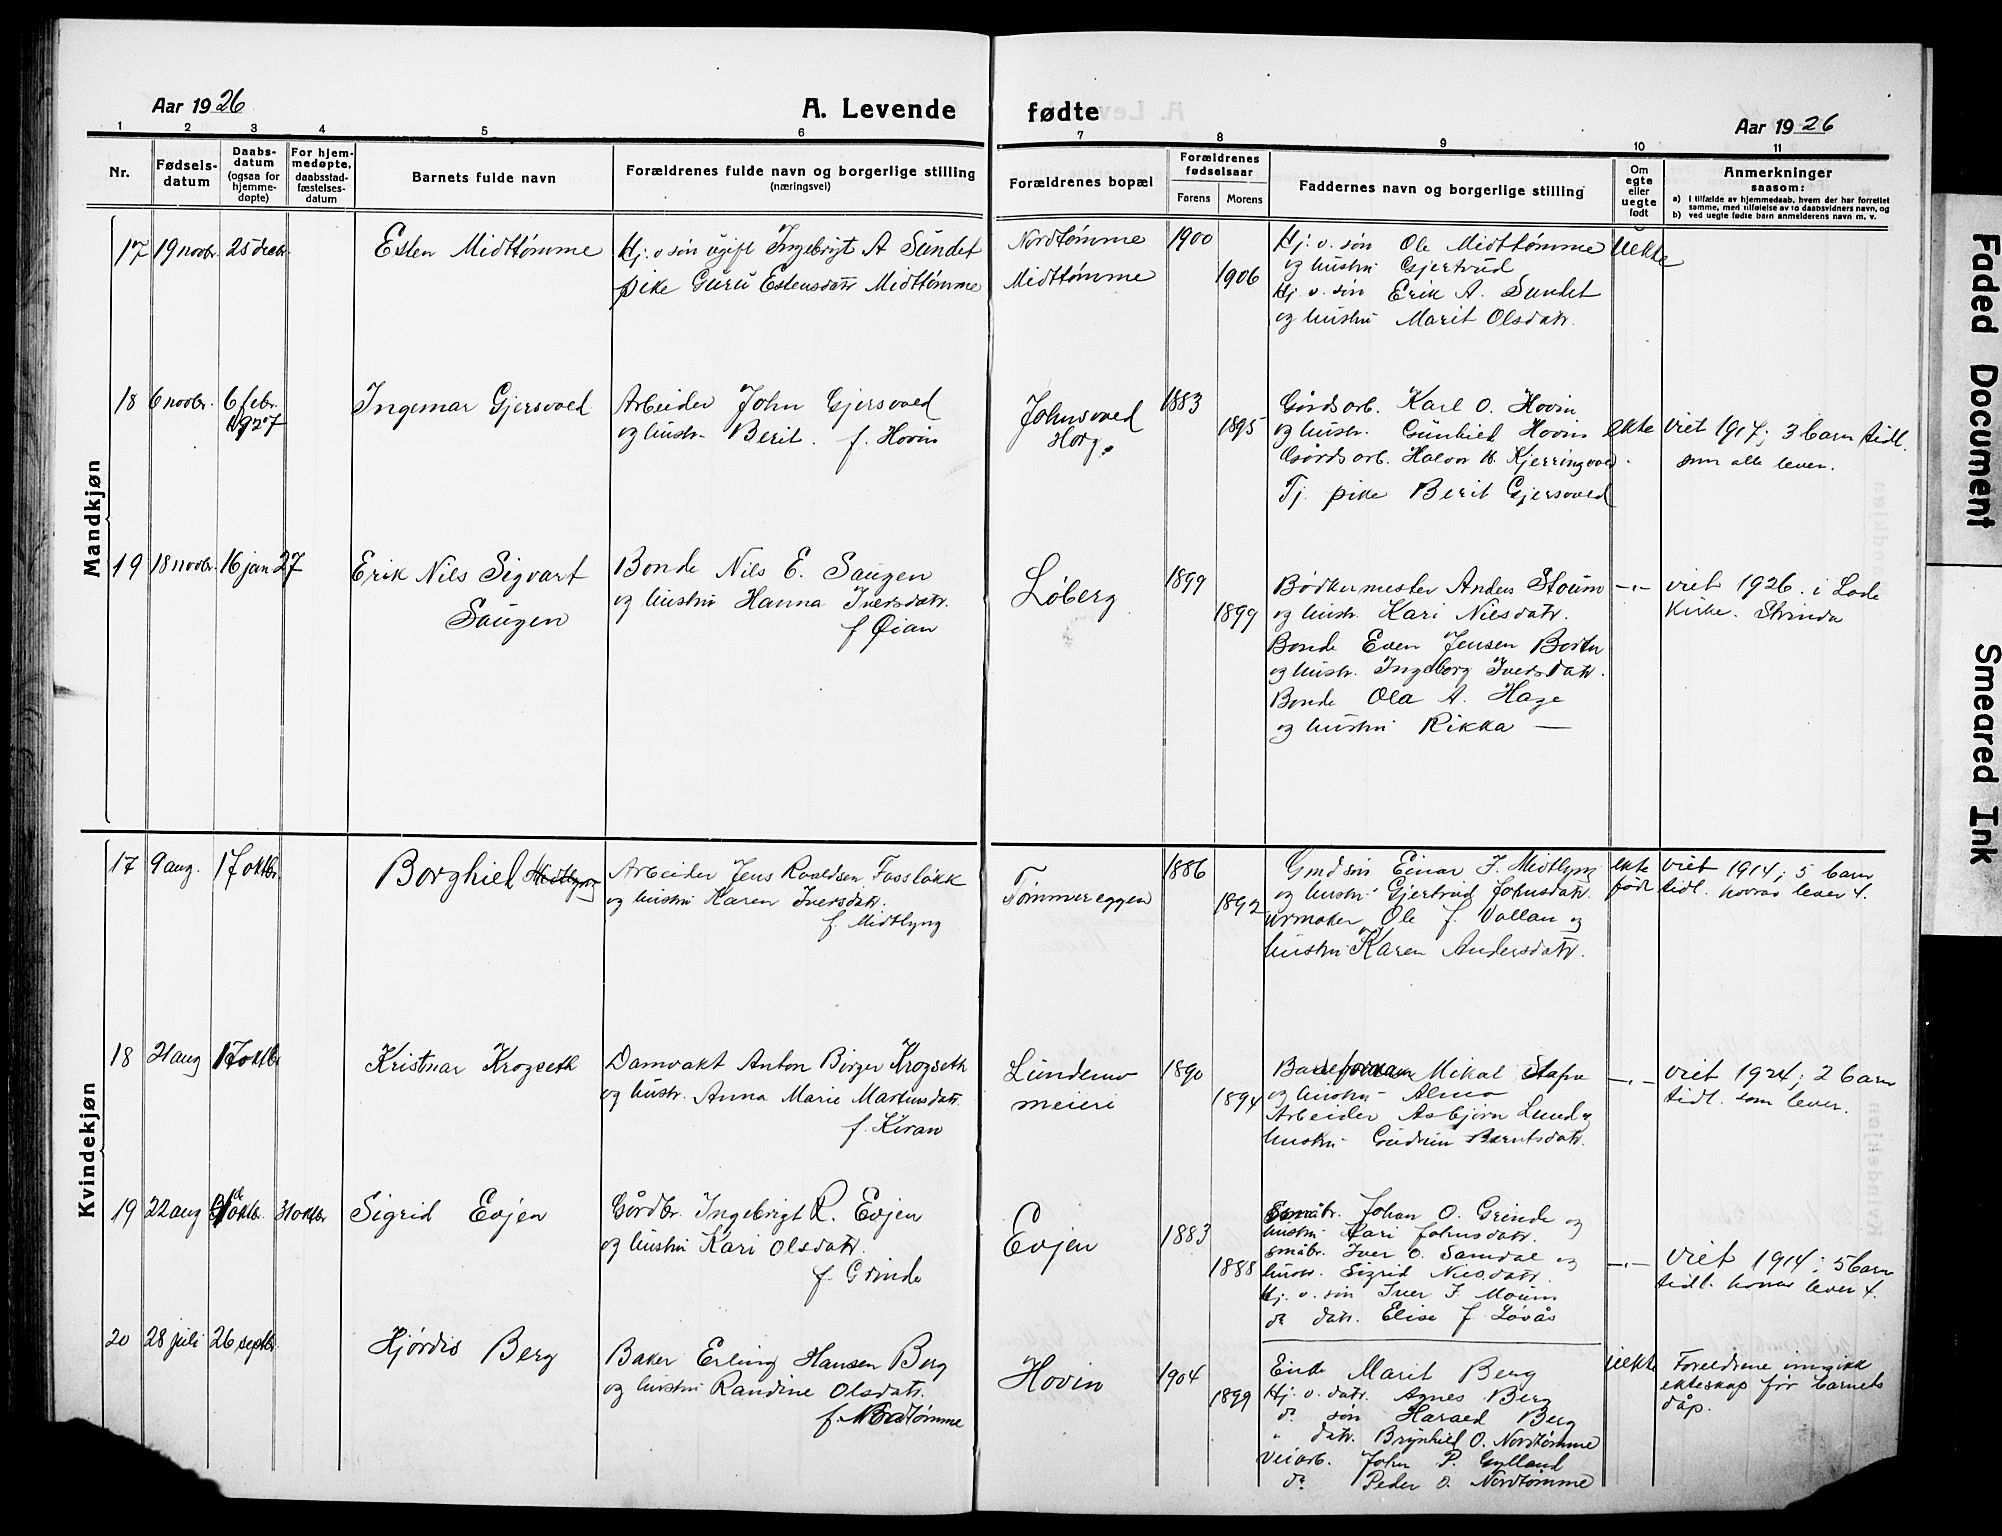 Aar 1926
A. Levende
fødte
Aar 1926
1 2 3 4 5 6 7 8 9 10 11
Nr.
Fødsels-
datum
Daabs-
datum
(ogsaa for
hjemme-
døpte)
For hjem-
medøpte,
daabsstad-
fæstelses-
datum
Barnets fulde navn
Forældrenes fulde navn og borgerlige stilling
(næringsvei)
Forældrenes bopæl
Forældrenes
fødselsaar
Farens Morens
Faddernes navn og borgerlige stilling
Om
egte
eller
uegte
født
Anmerkninger
saasom:
a) i tilfælde av hjemmedaab, hvem der har forrettet
samme, med tilføielse av to daabsvidners navn, og
b) ved uegte fødte barn anmelderens navn m. v.
Mandkjøn
17 19 novbr. 25 decbr.
Esten Midttømme
Hj. v. søn ugift Ingebrigt A Sundet
pike Guru Estensdatr Midttømme
Nordtømme
Midttømme
1900
1906
Hj. v. søn Ole Midttømme
og hustru Gjertrud
Hj. v. søn Erik A. Sundet
og hustru Marit Olsdatr.
Uekte
18 6 novbr. 6 febr.
1927
Ingemar Gjersvold
Arbeider John Gjersvold
og hustr. Berit. f. Hovin
Johnsvold
Horg.
1883
1895
Gårdsarb. Karl O. Hovin
og hustr. Gunhild Hovin
Gårdsarb. Halvor H. Kjerringvold
Tj. pike Berit Gjersvold
ekte
viet 1917; 3 barn tidl.
som alle lever.
19 18 novbr. 16 jan 27
Erik Nils Sigvart
Saugen
Bonde Nils E. Saugen
og hustru Hanna Iversdatr.
f Øian
Løberg
1899
1899
Bødkermester Anders Stoum
og hustr. Kari Nilsdatr.
Bonde Even Jensen Borten
og hustr. Ingeborg Iversdatr.
Bonde Ola A. Hage
og hustru Rikka —
—"—
viet 1926. i Lade
Kirke. Strinda
Kvindekjøn
17 9 aug. 17 oktbr.
Borghild Midtlyng
Arbeider Jens Roaldsen Fossløkk
og hustru Karen Iversdatr.
f. Midtlyng
Tømmereggen
1886
1892
Gmd søn Einar J. Midtlyng
og hustru Gjertrud Johnsdatr.
urmaker Ole J. Vollan og
hustru Karen Andersdatr.
ekte
født
viet 1914; 5 barn
tidl. hvorav lever 4.
18 21 aug 17 oktbr
Kristmar Krogseth
Damvakt Anton Birger Krogseth
og hustr. Anna Marie Martinsdatr.
f. Kiran
Lundemo
meieri
1890
1894
Baseforman Mikal Stafne
og hustru Alma
Arbeider Asbjørn Lund og
hustru Gudrun Berntsdatr.
—"—
viet 1924; 2 barn
tidl. som lever.
19 22 aug 31 oktbr. 31 oktbr
Sigrid Evjen
Gårdbr. Ingebrigt R. Evjen
og hustru Kari Olsdatr.
f. Grinde
Evjen
1883
1888
Småbr. Johan O. Grinde og
hustru Kari Johnsdatr.
småbr. Iver O. Samdal og
hustr. Sigrid Nilsdatr.
Hj. v. søn Iver J. Moum
do datr. Elise J Løvås
—"—
viet 1914; 5 barn
tidl. hvorav lever 4.
20 28 juli 26 septbr.
Hjørdis Berg
Baker Erling Hansen Berg
og hustru Randine Olsdatr.
f. Nordtømme
Hovin
1904
1899
Enke Marit Berg
Hj. v. datr. Agnes Berg
do søn Harald Berg
" datr. Brynhild O. Nordtømme
Veiarb. John P. Gylland
do Peder O. Nordtømme
uekte
Foreldrene inngikk
ekteskap før barnets
dåp.
Faded Document
Smeared Ink